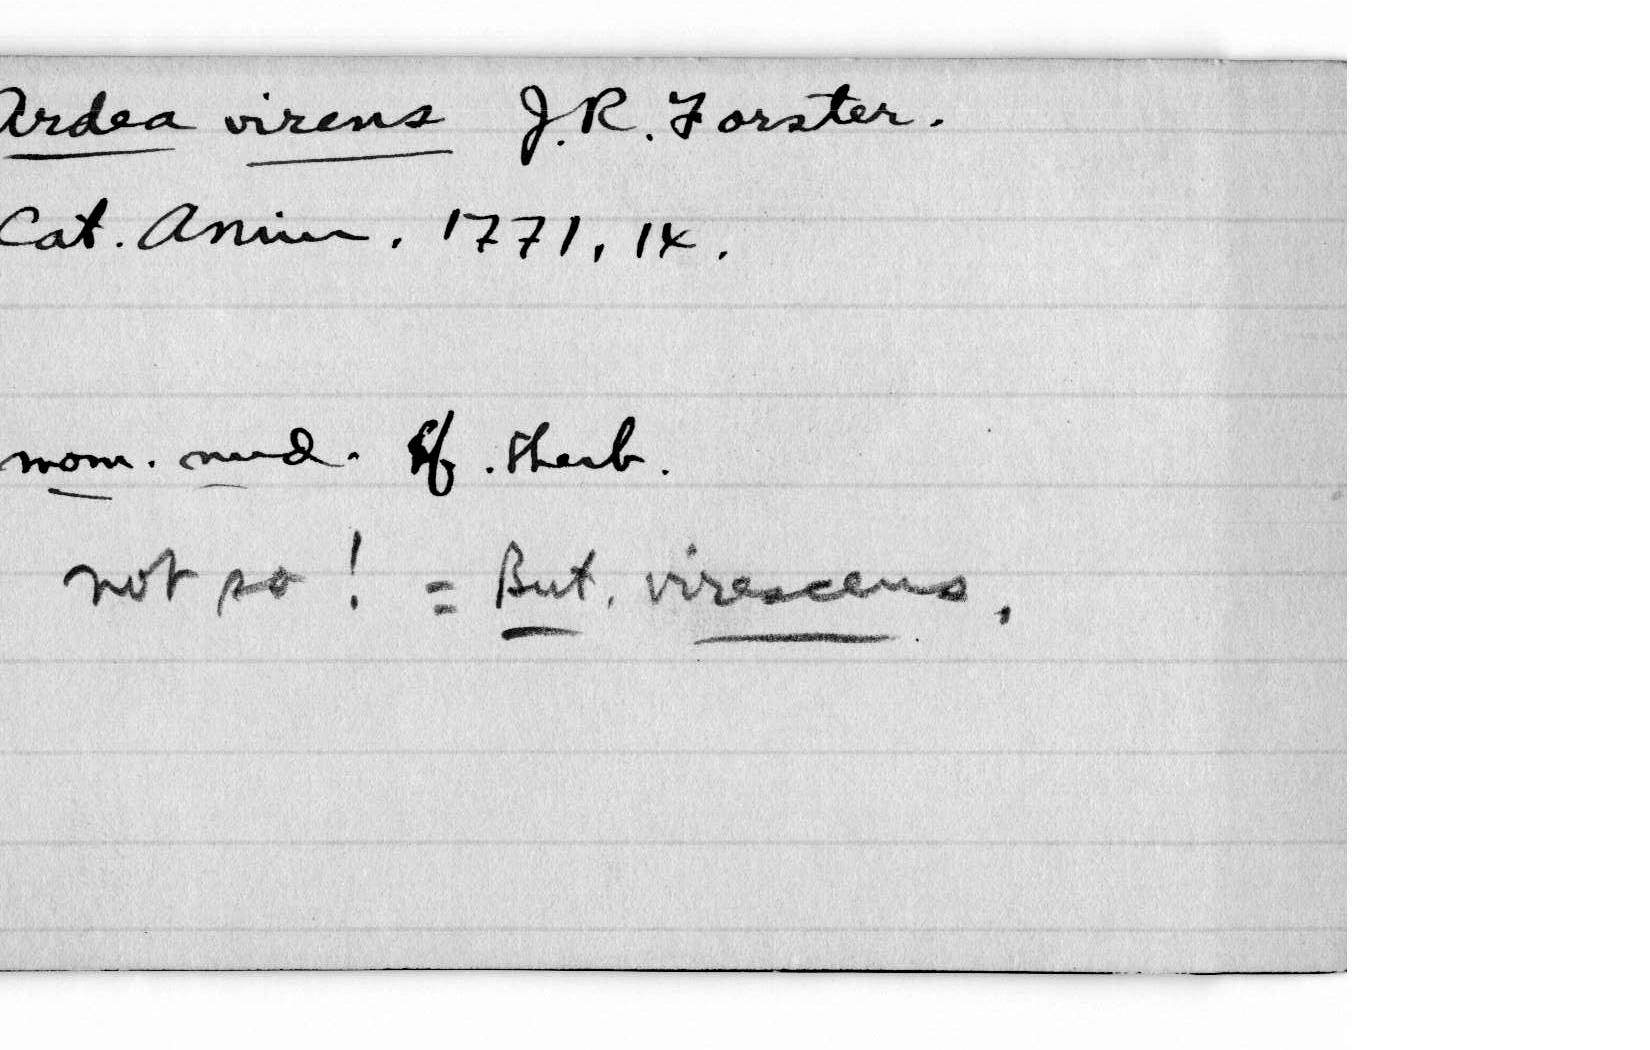 Ardea virens J. R. Forster.
Cat. Anim. 1771, 14.
nom. nud. fide Sherb.
not so! = But. virescens.